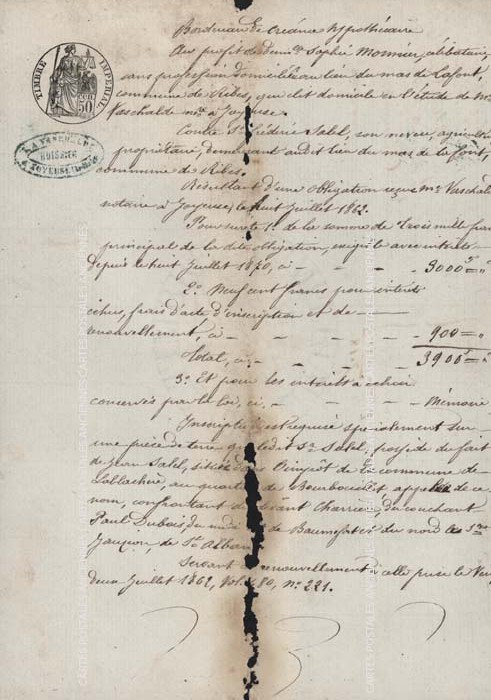 Bordereau de Créance hypothécaire
Au profit de Demlle Sophie Monnier, célibataire,
sans profession domiciliée au lieu du mas de Lafont,
commune de Ribes, qui élit domicile en l'étude de Me
Vaschalde nre à Joyeuse.
Contre Sr Frédéric Satel, son neveu, agriculteur
propriétaire, demeurant audit lieu du mas de la font,
commune de Ribes.
Résultant d'une obligation reçue Me Vaschalde
notaire à Joyeuse, le huit Juillet 1862.
Pour sureté 1o de la somme de trois mille francs
principal de la dite obligation, exigible avec intérêts
depuis le huit Juillet 1870, ci - - - 3000f = "
2o Neuf cent francs pour intérêts
échus, frais d'acte d'inscription et de
renouvellement, ci - - - 900 = "
Total, ci, - - - 3900f = "
3o Et pour les intérêts à échoir
conservés par la loi, ci, - - - Mémoire
Inscription est requise spécialement sur
une pièce de terre que ledit Sr Satel, possède du fait
de Jean Satel, située dans l'impôt de la commune de
Lablachère, au quartier de et appelée de ce
nom, confrontant du levant Charrière, du couchant
Paul Dubois, du midi de Baumefort et du nord les
Jaujon, de St Alban
Servant renouvellement à celle prise le Vingt
deux Juillet 1862, Vol. 80, No 221.
TIMBRE IMPERIAL
50
HUISSIER
JOYEUSE